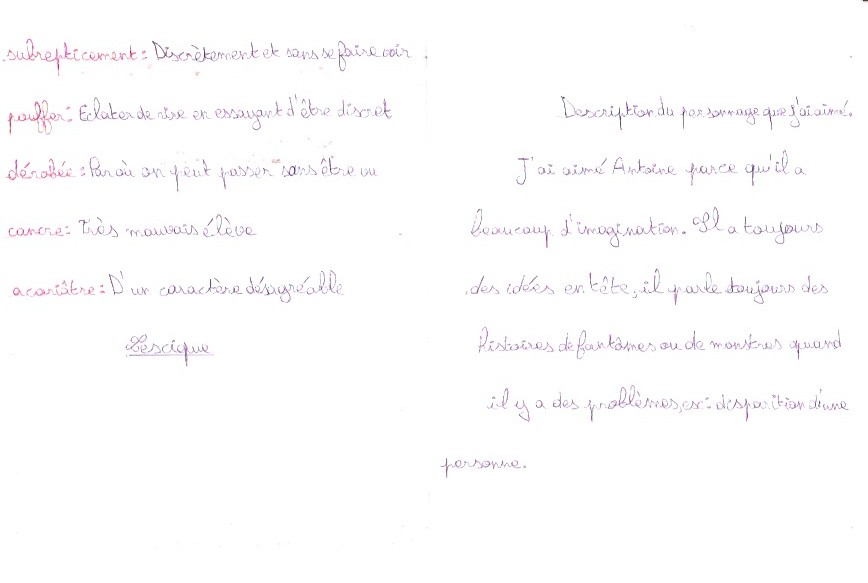 subrepticement: Discrètement et sans se faire voir
pouffer: Eclater de rire en essayant d'être discret
dérobée: Par où on peut passer sans être vu
cancre: Très mauvais élève
acariâtre: D'un caractère désagréable
Lescique
Description du personnage que j'ai aimé.
J'ai aimé Antoine parce qu'il a
beaucoup d'imagination. Il a toujours
des idées en tête, il parle toujours des
histoires de fantômes ou de monstres quand
il y a des problèmes, ex: disparition d'une
personne.